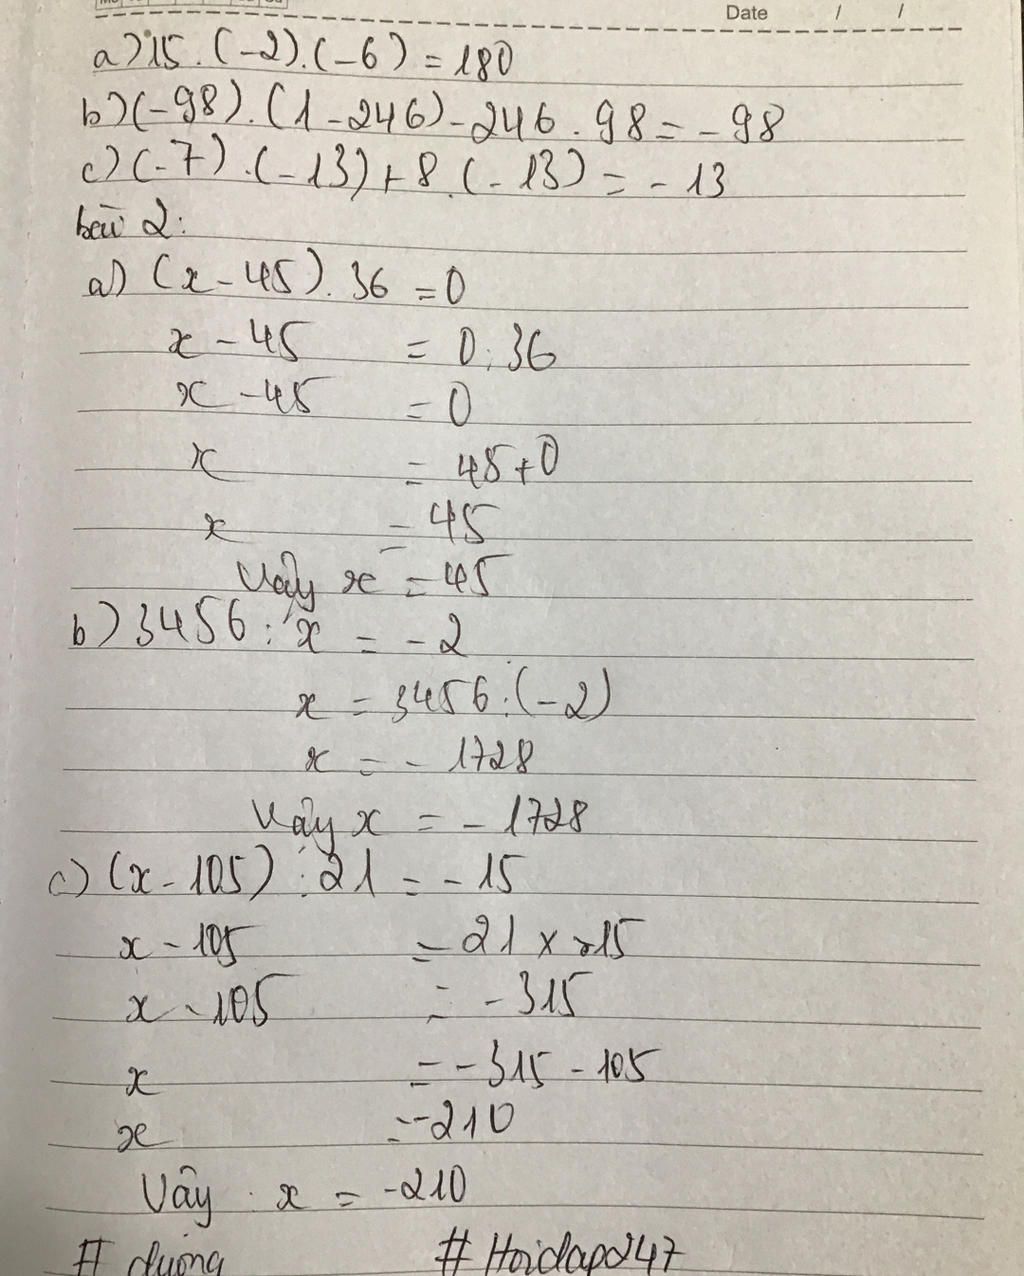 Date / /
a) 15 . (-2) . (-6) = 180
b) (-98) . (1 - 246) - 246 . 98 = - 98
c) (-7) . (-13) + 8 . (- 13) = - 13
bài 2:
a) (x - 45) . 36 = 0
x - 45 = 0 : 36
x - 45 = 0
x = 45 + 0
x = 45
Vậy x = 45
b) 3456 : x = - 2
x = 3456 : (-2)
x = - 1728
Vậy x = - 1728
c) (x - 105) : 21 = - 15
x - 105 = 21 x -15
x - 105 = - 315
x = - 315 - 105
x = -210
Vậy x = -210
# dương # Hoidap247